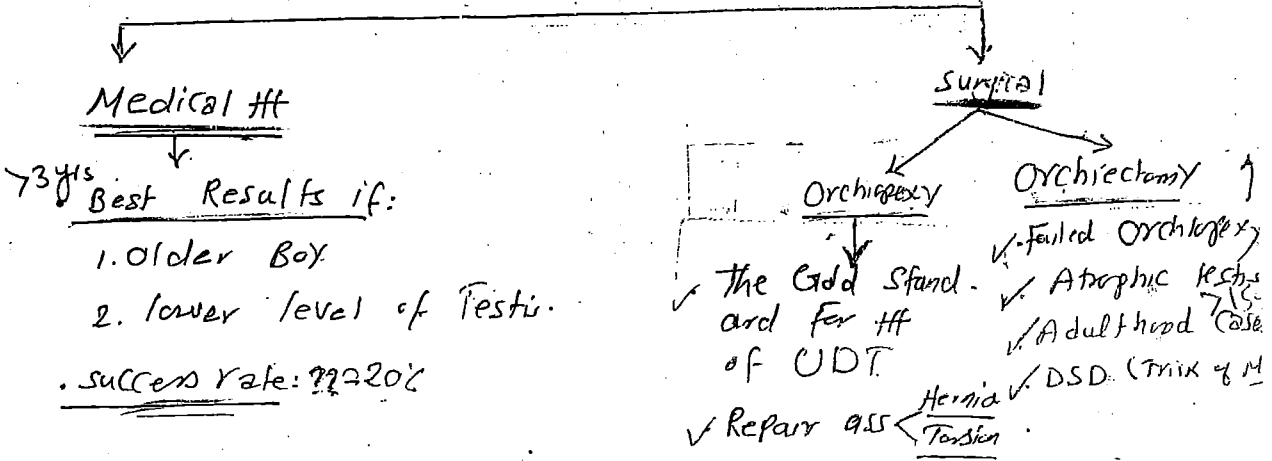 Medical ttt
>3 yrs
Best Results if:
1. Older Boy.
2. lower level of Testis.
. success rate: ??=20%
Surgical
Orchiopexy
✓ The Gold Stand-
ard for ttt
of UDT
✓ Repair ass < Hernia
Torsion
Orchiectomy
✓ Failed Orchiopexy
✓ Atrophic testis
✓ Adulthood Case
✓ DSD (Mix of M